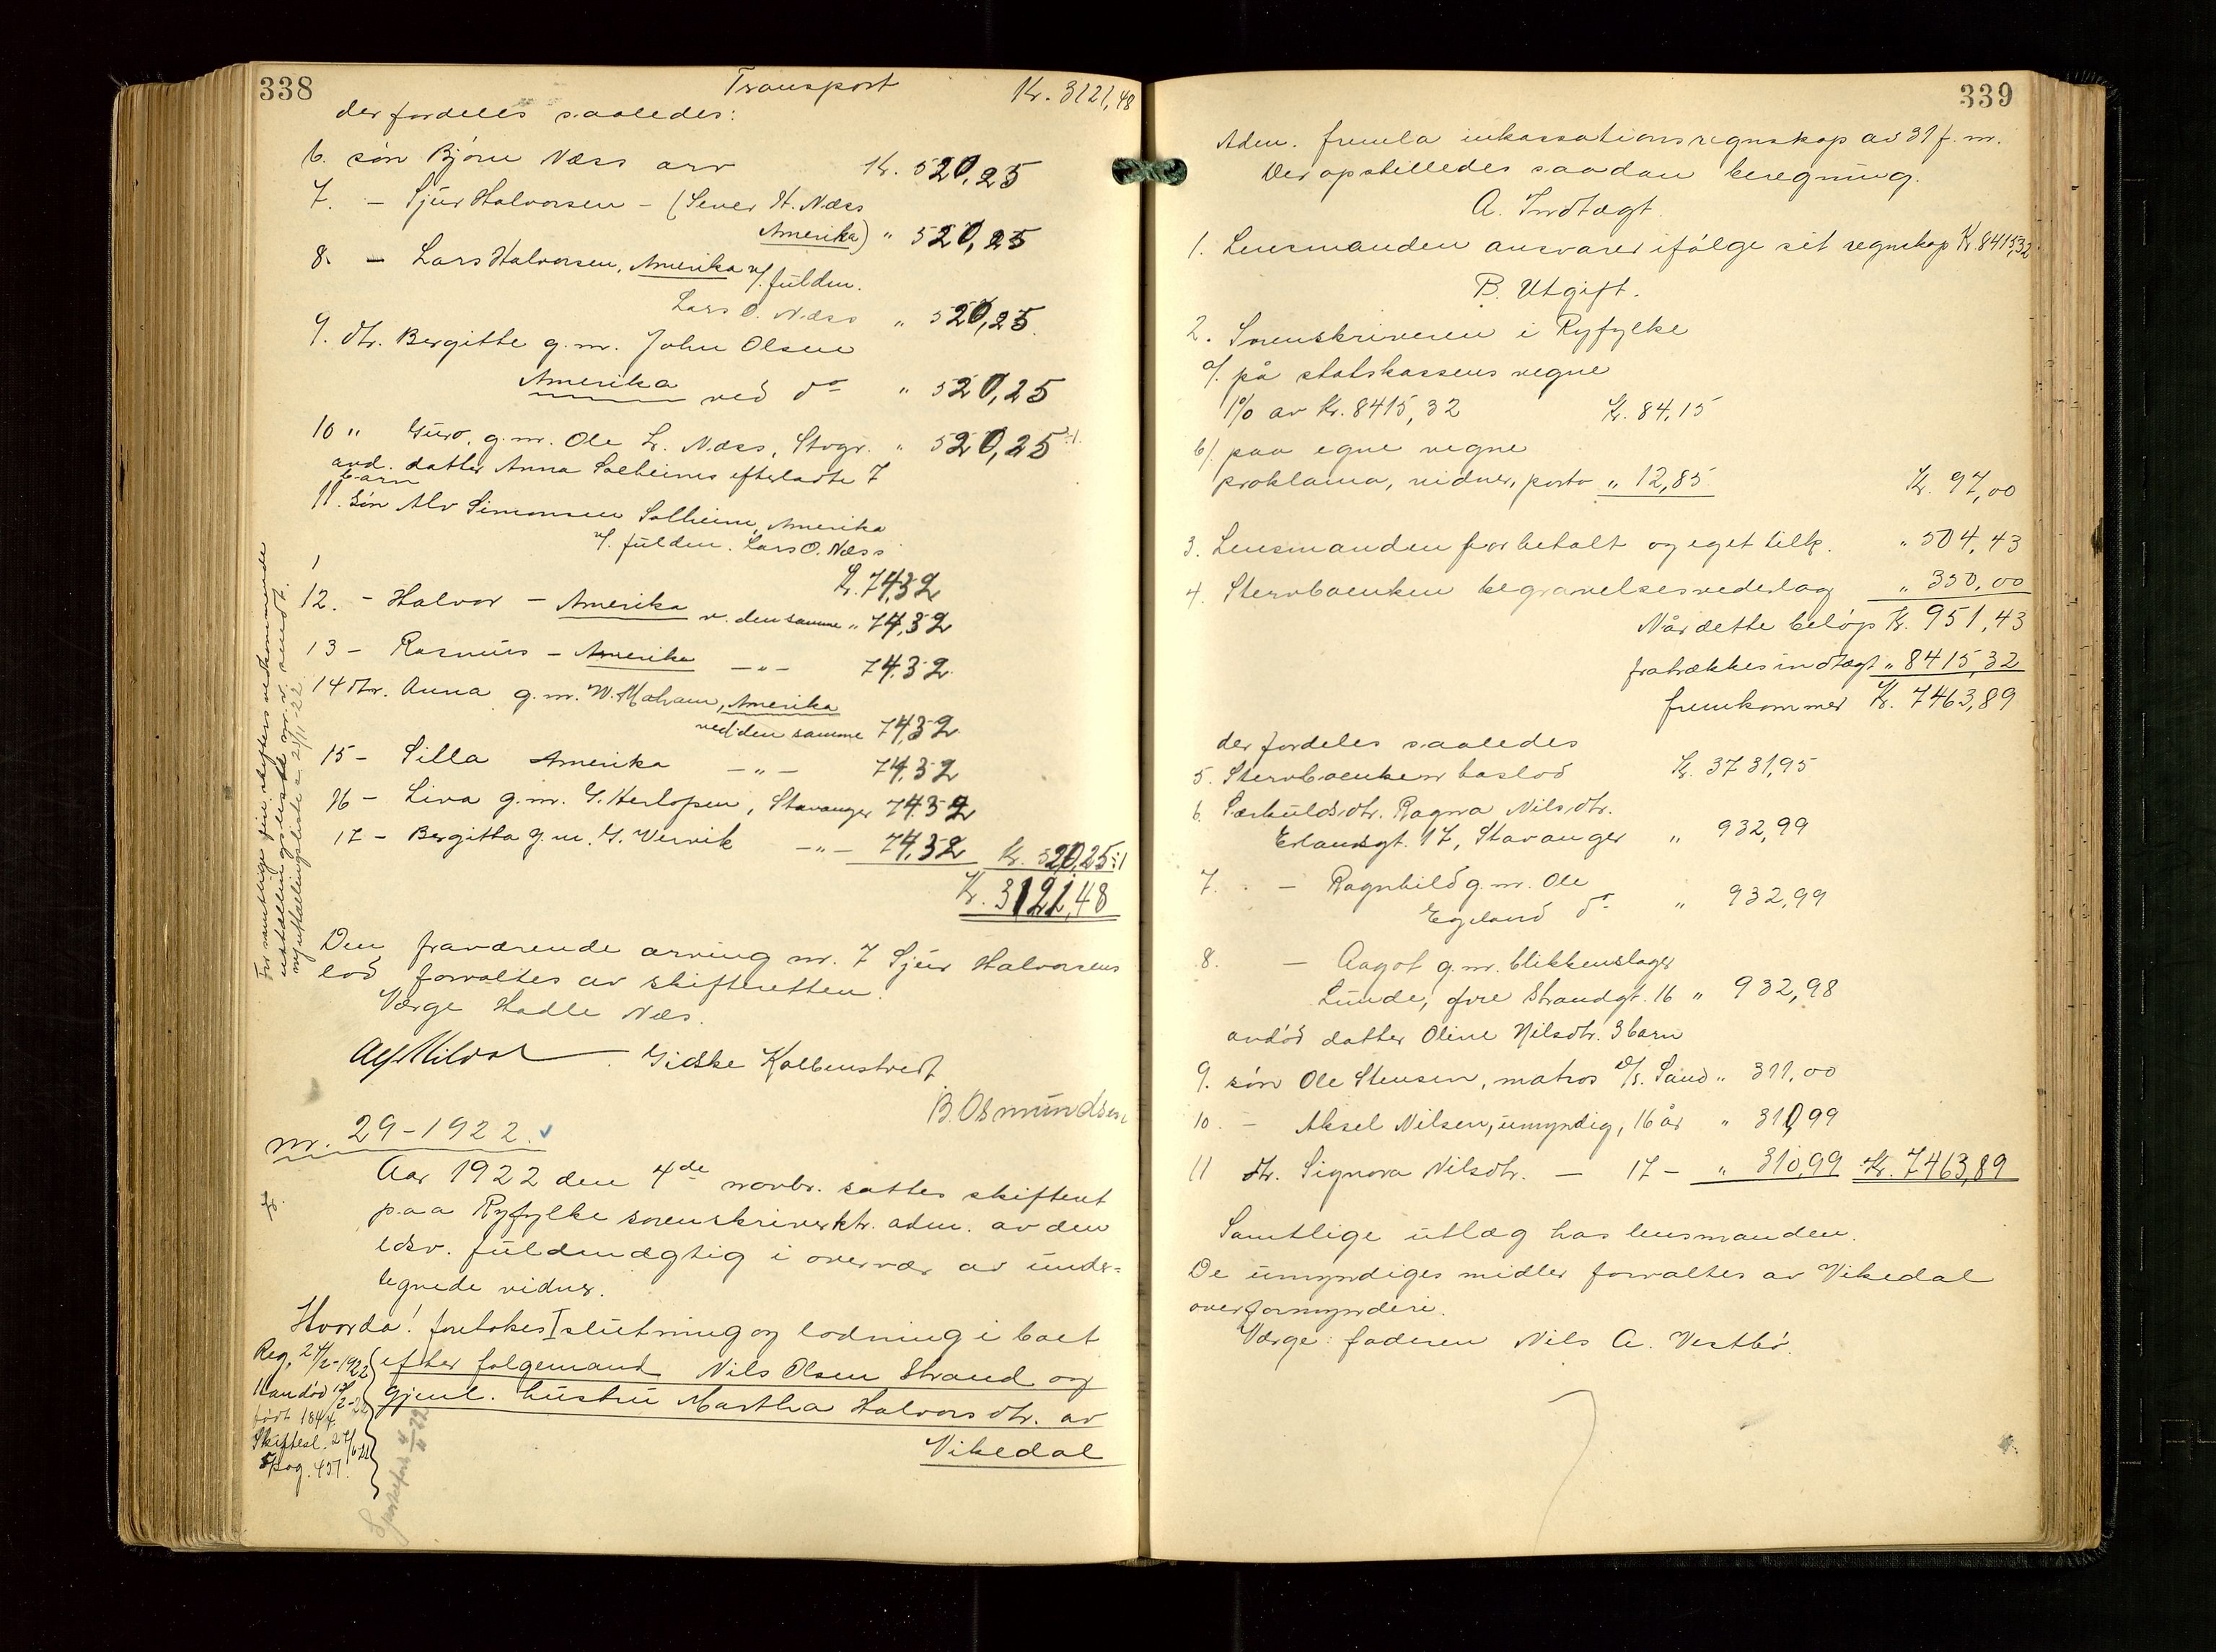 338
Transport Kr. 3121,48
der fordeles saaledes:
6. søn Bjørn Næss arv Kr. 520,25
7. — Sjur Halvorsen — (Sever H. Næss
Amerika) " 520,25
8. — Lars Halvorsen, Amerika v/. fuldm.
Lars O. Næss " 520,25
9. dtr. Bergitte g.m. John Olsen
Amerika ved do " 520,25
10 " Guro, g.m. Ole L. Næss, Stvgr. " 520,25 ÷1
avd. datter Anna Solheims efterladte 7
barn
11. søn Alv Simonsen Solheim, Amerika
v/. fuldm. Lars O. Næss
Kr. 74,32
12. - Halvor - Amerika v. den samme " 74,32
13 - Rasmus - Amerika — " — 74,32
14 dtr. Anna g.m. W. Maham, Amerika
ved den samme 74,32
15 - Silla Amerika — " — 74,32
16 - Liva g.m. G. Herlopsen, Stavanger 74,32
17 - Bergitta g.m. G. Vervik — " — 74,32 Kr. 520,25 ÷1
Kr. 3121,48
Den fraværende arving nr. 7 Sjur Halvorsens
lod forvaltes av skifteretten.
Værge Hadle Næs.
Alf Mildal Gidske Kolbenstvedt
B. Osmundsen
For samtlige
utdællingsliste
ny utdællingsliste s. 25/11-22.
nr. 29-1922.
Aar 1922 den 4de novbr. sattes skifteret
paa Ryfylke sorenskriverktr. adm. av den
edsv. fuldmægtig i overvær av under-
tegnede vidner.
Hvorda! foretokes slutning og lodning i boet
efter følgemand Nils Olsen Strand og
gjenl. hustru Martha Halvorsdtr. av
Vikedal
Reg. 24/2-1922
Han død 12/2-22
født 1844.
Skiftesl. 24/6-22
Skog. 451.
4/11 22.
339
Adm. fremla inkassationsregnskap av 31 f. m.
Der opstilledes saadan beregning.
A. Indtægt.
1. Lensmanden ansvarer ifølge sit regnskap Kr. 8415,32.
B. Utgift.
2. Sorenskriveren i Ryfylke
a/. på statskassens vegne
1% av Kr. 8415,32 Kr. 84,15
b/. paa egne vegne
proklama, vidner, porto " 12,85 Kr. 97,00
3. Lensmanden forbetalt og eget tilk. " 504,43
4. Stervboenken begravelsesvederlag " 350,00
Når dette beløp Kr. 951,43
fratrækkes indtægt " 8415,32
fremkommer Kr. 7463,89
der fordeles saaledes
5. Stervboenkens boslod Kr. 3731,95
6. Særkuldsdtr. Ragna Nilsdtr.
Erlandsgt. 17, Stavanger " 932,99
7. - — Ragnhild g.m. Ole
Egeland do " 932,99
8. — Aagot g.m. blikkenslager
Lunde, øvre Strandgt. 16 " 932,98
avdød datter Oline Nilsdtr. 3 barn
9. søn Ole Stensen, matros D/S. Sand " 311,00
10. - Aksel Nilsen, umyndig, 16 år " 310,99
11 dtr. Signora Nilsdtr. — 17 — " 310,99 Kr. 7463,89
Samtlige utlæg hos lensmanden.
De umyndiges midler forvaltes av Vikedal
overformynderi.
Værge: faderen Nils A. Vestbø.